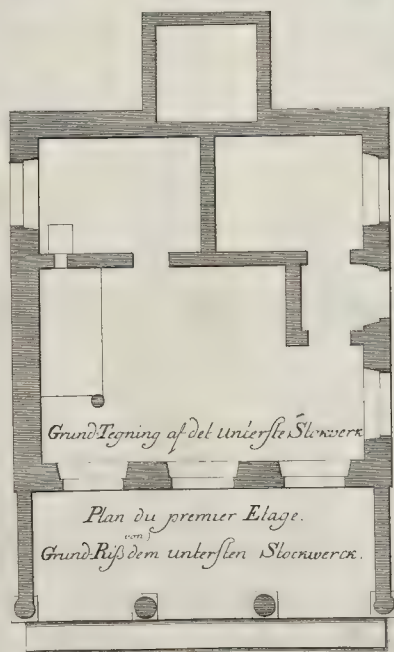 Grund-Tegning af det unterste Stokwerk
Plan du premier Etage.
von
Grund-Riß dem untersten Stockwerck.